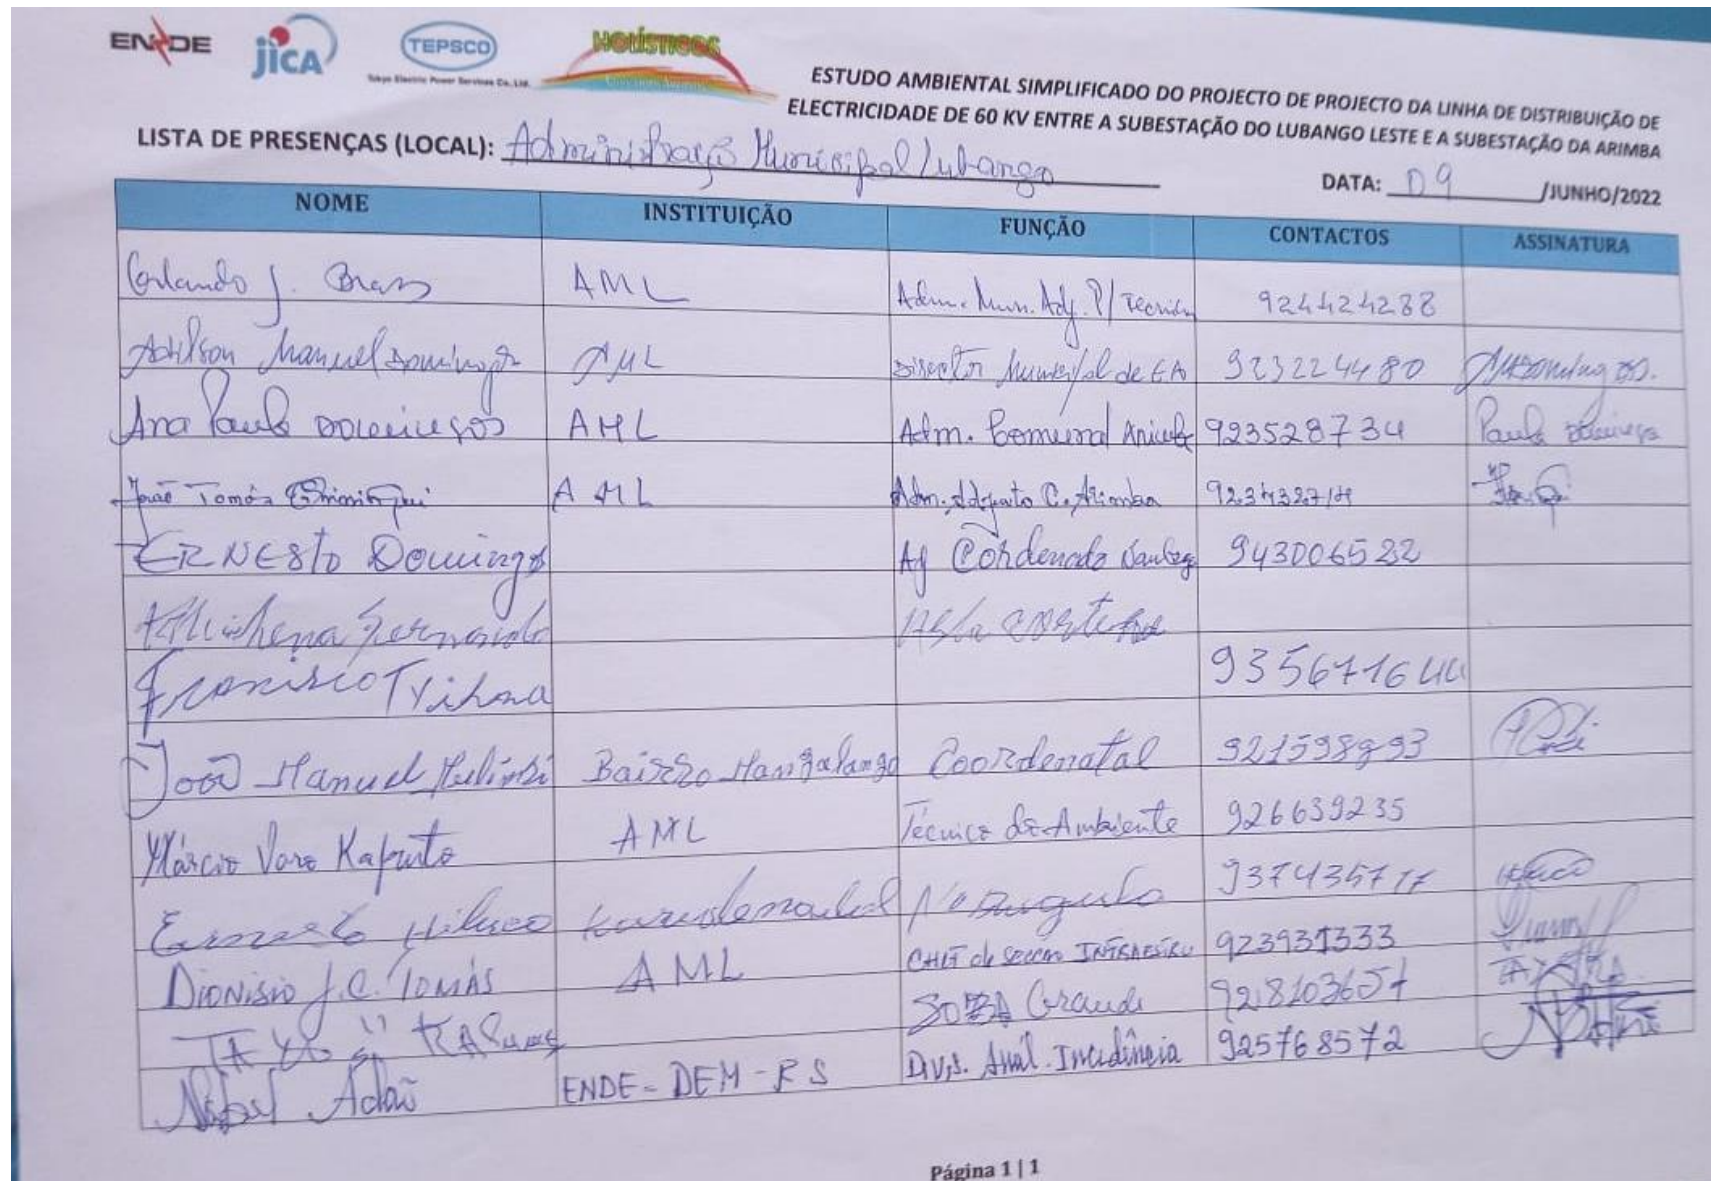 ENDE jica TEPSCO HOLÍSTICOS
Tokyo Electric Power Services Co., Ltd.
ESTUDO AMBIENTAL SIMPLIFICADO DO PROJECTO DE PROJECTO DA LINHA DE DISTRIBUIÇÃO DE
ELECTRICIDADE DE 60 KV ENTRE A SUBESTAÇÃO DO LUBANGO LESTE E A SUBESTAÇÃO DA ARIMBA
LISTA DE PRESENÇAS (LOCAL): Administração Municipal Lubango
DATA: 09 /JUNHO/2022
NOME INSTITUIÇÃO FUNÇÃO CONTACTOS ASSINATURA
Orlando J. Bras AML Adm. Mun. Adj. P/ Tecnica 924424288
Adilson Manuel Domingos AML Director Municipal de EA 923224480
Ana Paula Domingos AML Adm. Comunal Arimba 923528734 Paula Domingos
João Tomás AML Adm. Adjunto C. Arimba
ERNESTO Domingos Aj Cordenado 943006522
Fernando
Francisco 935671644
João Manuel Bairro Coordenatal 921598893
Márcio Varo Kaputo AML Técnico de Ambiente 926639235
Ernesto 937435717
Dionisio J.C. Tomás AML CHEF de Seccao 923931333
SOBA Grande 928103657
Adão ENDE - DEM - RS Divis. Anál. Incidência 925768572
Página 1 | 1